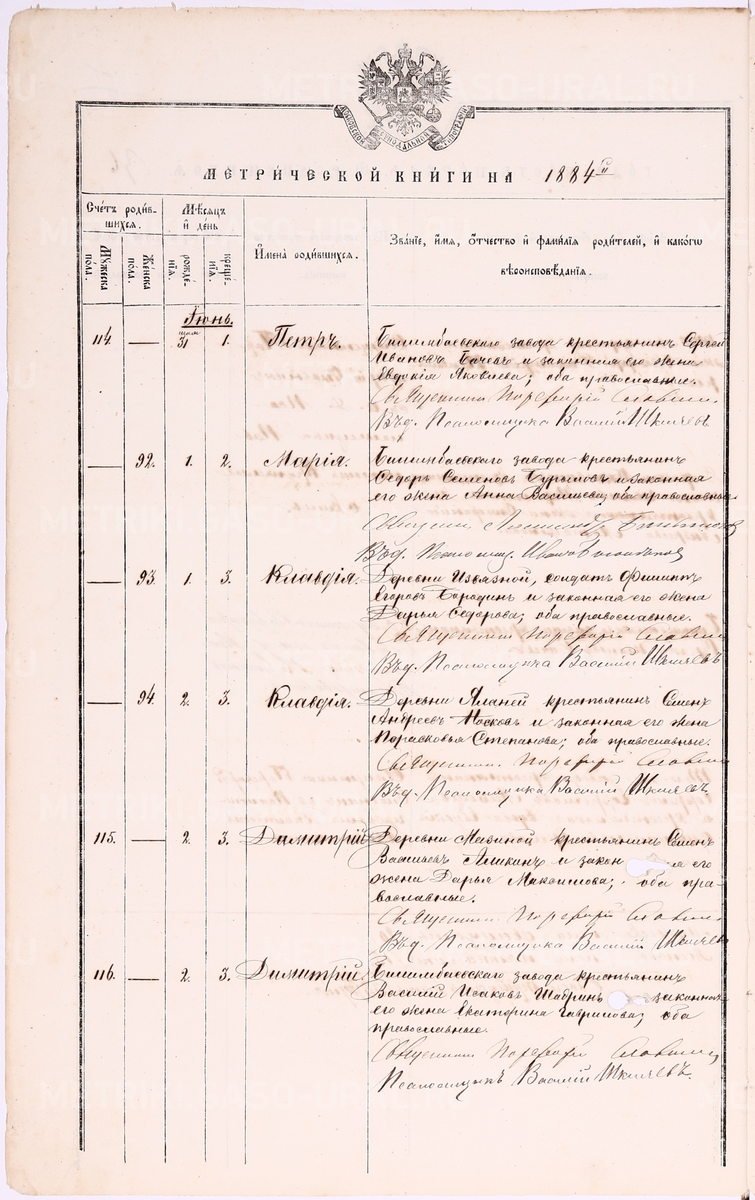 МЕТРИЧЕСКОЙ КНИГИ НА 1884й
Счетъ родив-
шихся.
Мѣсяцъ
и день
Имена родившихся.
Званіе, имя, отчество и фамилія родителей, и какогѡ
вѣроисповѣданія.
Мужеска
пола.
Женска
пола.
рожде-
нія.
креще-
нія.
Іюнь.
114. — 31 1. Петръ.
Билимбаевскаго завода крестьянинъ Сергей
Ивановъ Бачевъ и законная его жена
Евдокія Яковлева; оба православные.
Священникъ Порфирій Славнинъ
Въ д. Псаломщика Василій Шкляевъ
— 92. 1. 2. Марія.
Билимбаевскаго завода крестьянинъ
Ѳедоръ Семеновъ Бурыловъ и законная
его жена Анна Васильева; оба православные
Священникъ
Въ д. Псаломщ. Иванъ
— 93. 1. 3. Клавдія.
Деревни Извязной, солдатъ Филиппъ
Егоровъ Бородинъ и законная его жена
Дарья Ѳедорова; оба православные.
Священникъ Порфирій Славнинъ
Въ д. Псаломщика Василій Шкляевъ
— 94. 2. 3. Клавдія.
Деревни Яланей крестьянинъ Семенъ
Андреевъ Носковъ и законная его жена
Парасковья Степанова; оба православные.
Священникъ Порфирій Славнинъ
Въ д. Псаломщика Василій Шкляевъ.
115. — 2. 3. Димитрій
Деревни Мазиной крестьянинъ Семенъ
Васильевъ Аликинъ и закон я его
жена Дарья Максимова; оба пра-
вославные.
Священникъ Порфирій Славнинъ
Въ д. Псаломщика Василій Шкляевъ
116. — 2. 3. Димитрій.
Билимбаевскаго завода крестьянинъ
Василій Исаковъ Шабринъ законная
его жена Екатерина Гаврилова; оба
православные.
Священникъ Порфирій Славнинъ
Псаломщикъ Василій Шкляевъ.